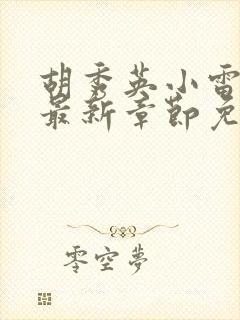 胡秀英小雷
最新章节免
零空夢